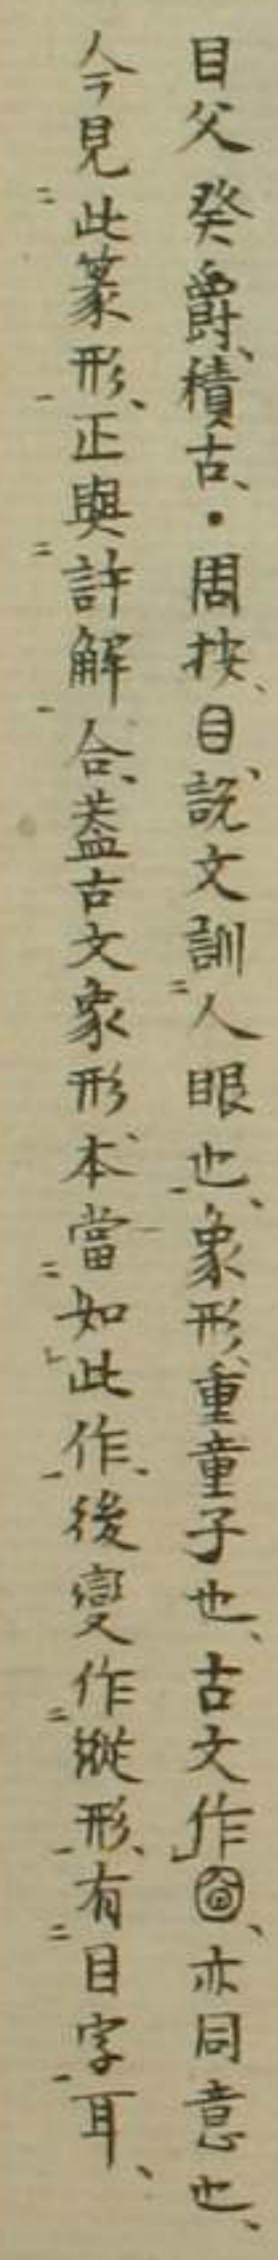 目父癸爵積古、・周按、目、説文訓人眼也、象形、重童子也、古文作𡇡、亦同意也、
今見此篆形、正與許解合、葢古文象形本當如此作、後變作縱形、有目字耳、